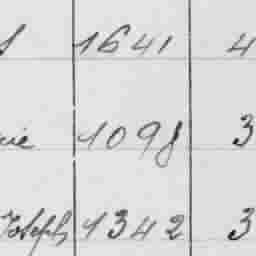 1641 4
1098 3
Joseph 1342 3